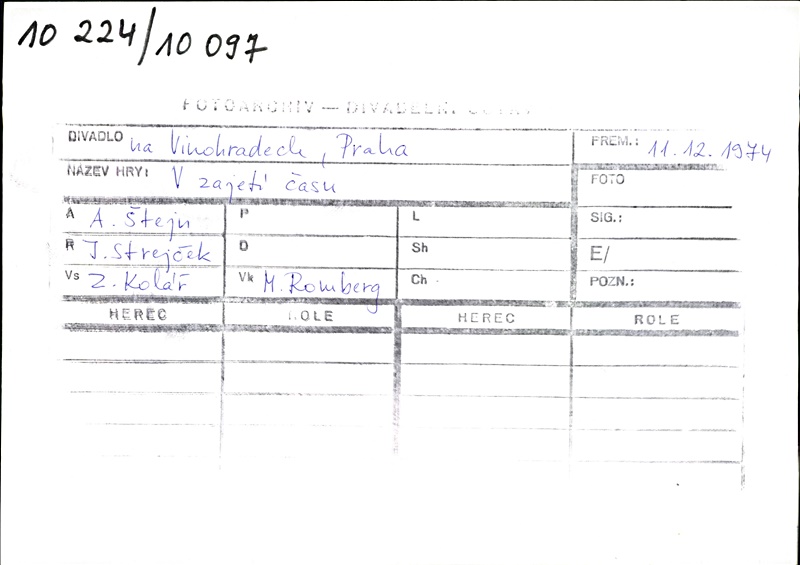 10 224/10 097
FOTOARCHIV — DIVADELNÍ ÚSTAV
DIVADLO na Vinohradech, Praha PREM.: 11.12.1974
NÁZEV HRY: V zajetí času FOTO
A A. Štejn P L SIG.:
R J. Strejček D Sh E/
Vs Z. Kolář Vk M. Romberg Ch POZN.:
HEREC ROLE HEREC ROLE